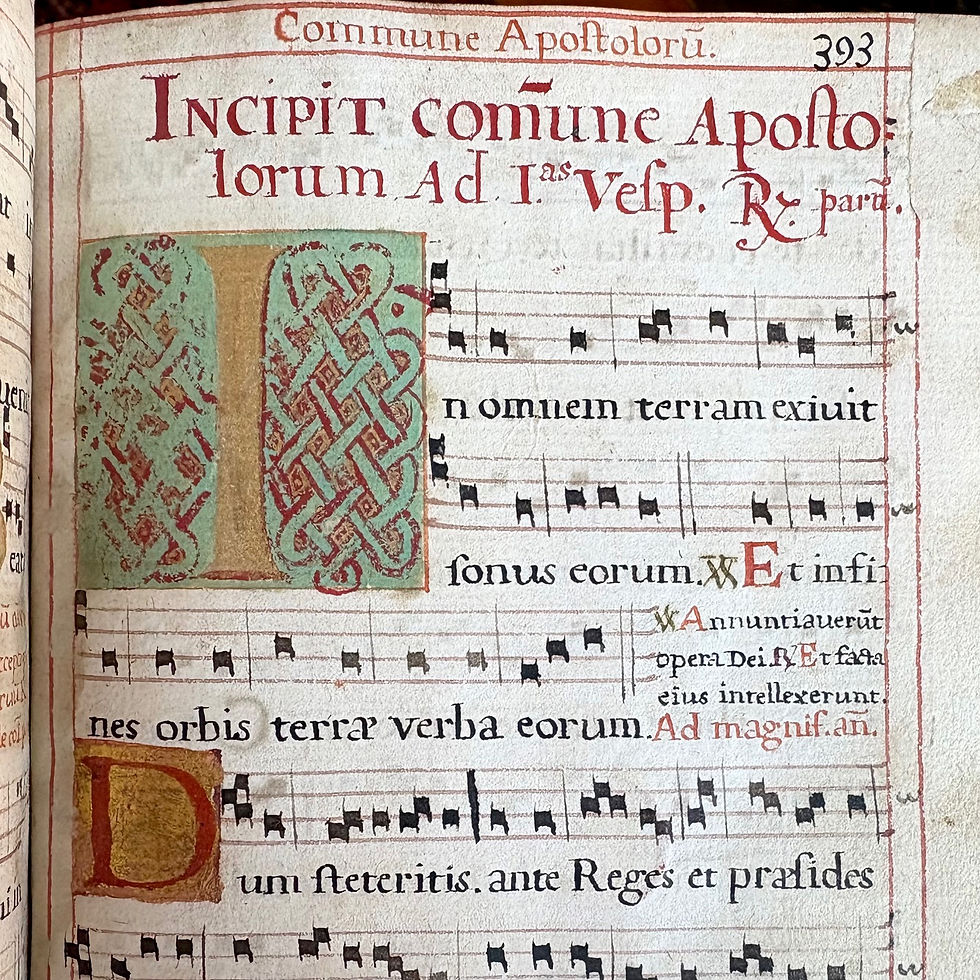 Commune Apoſtolorū.
393
INCIPIT com̄une Apoſto:
lorum Ad I.as Veſp. ℞. parū.
In omnem terram exiuit
ſonus eorum. ℣ Et infi
nes orbis terræ verba eorum.
℣ Annuntiauerūt
opera Dei. ℟ Et facta
eius intellexerunt.
Ad magnif. an̄.
Dum ſteteritis. ante Reges et præſides